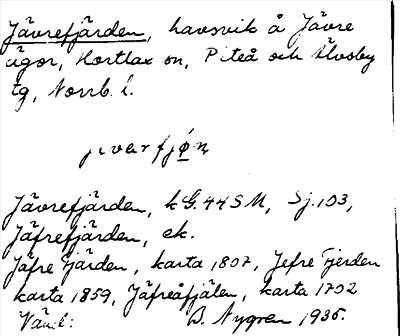 Jävrefjärden, havsvik å Jävre
ägor, Hortlax sn, Piteå och Älvsby
tg, Norrb. l.
jεvərfjø̱ṇ
Jävrefjärden, kG. 44 SM, Sj. 103,
Jäfrefjärden, ek.
Jäfre Fjärden, karta 1807, Jefre Fjerden
karta 1859, Jäfreåfjälen, karta 1702
Vänd: B. Nygren 1935.